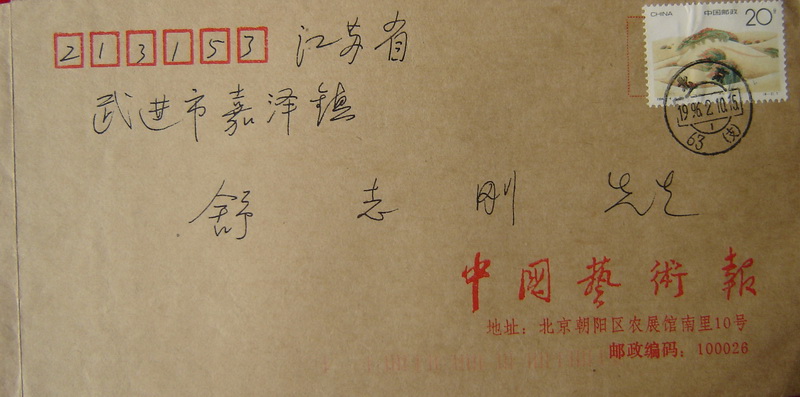 213153 江苏省
武进市嘉泽镇
舒志刚 先生
CHINA 中国邮政 20分
北京
1996.2.10.15
63 (支)
中國藝術報
地址：北京朝阳区农展馆南里10号
邮政编码：100026